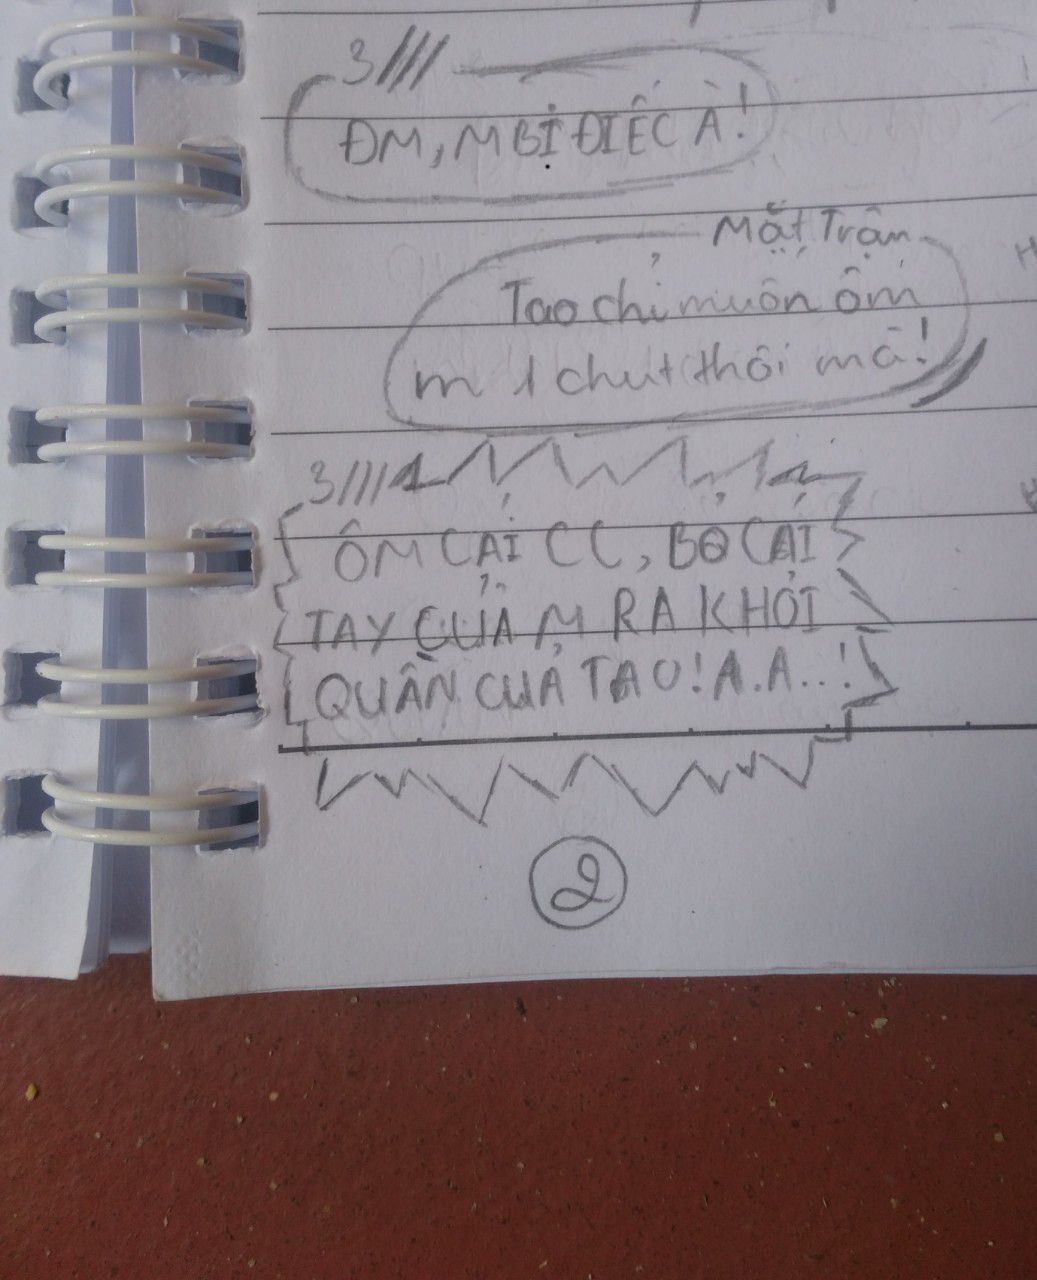 3///
ĐM, M BỊ ĐIẾC À!
Mặt Trận
Tao chỉ muốn ôm
m 1 chút thôi mà!
3///
ÔM CÁI CC, BỎ CÁI
TAY CỦA M RA KHỎI
QUẦN CỦA TAO! A.A...!
2